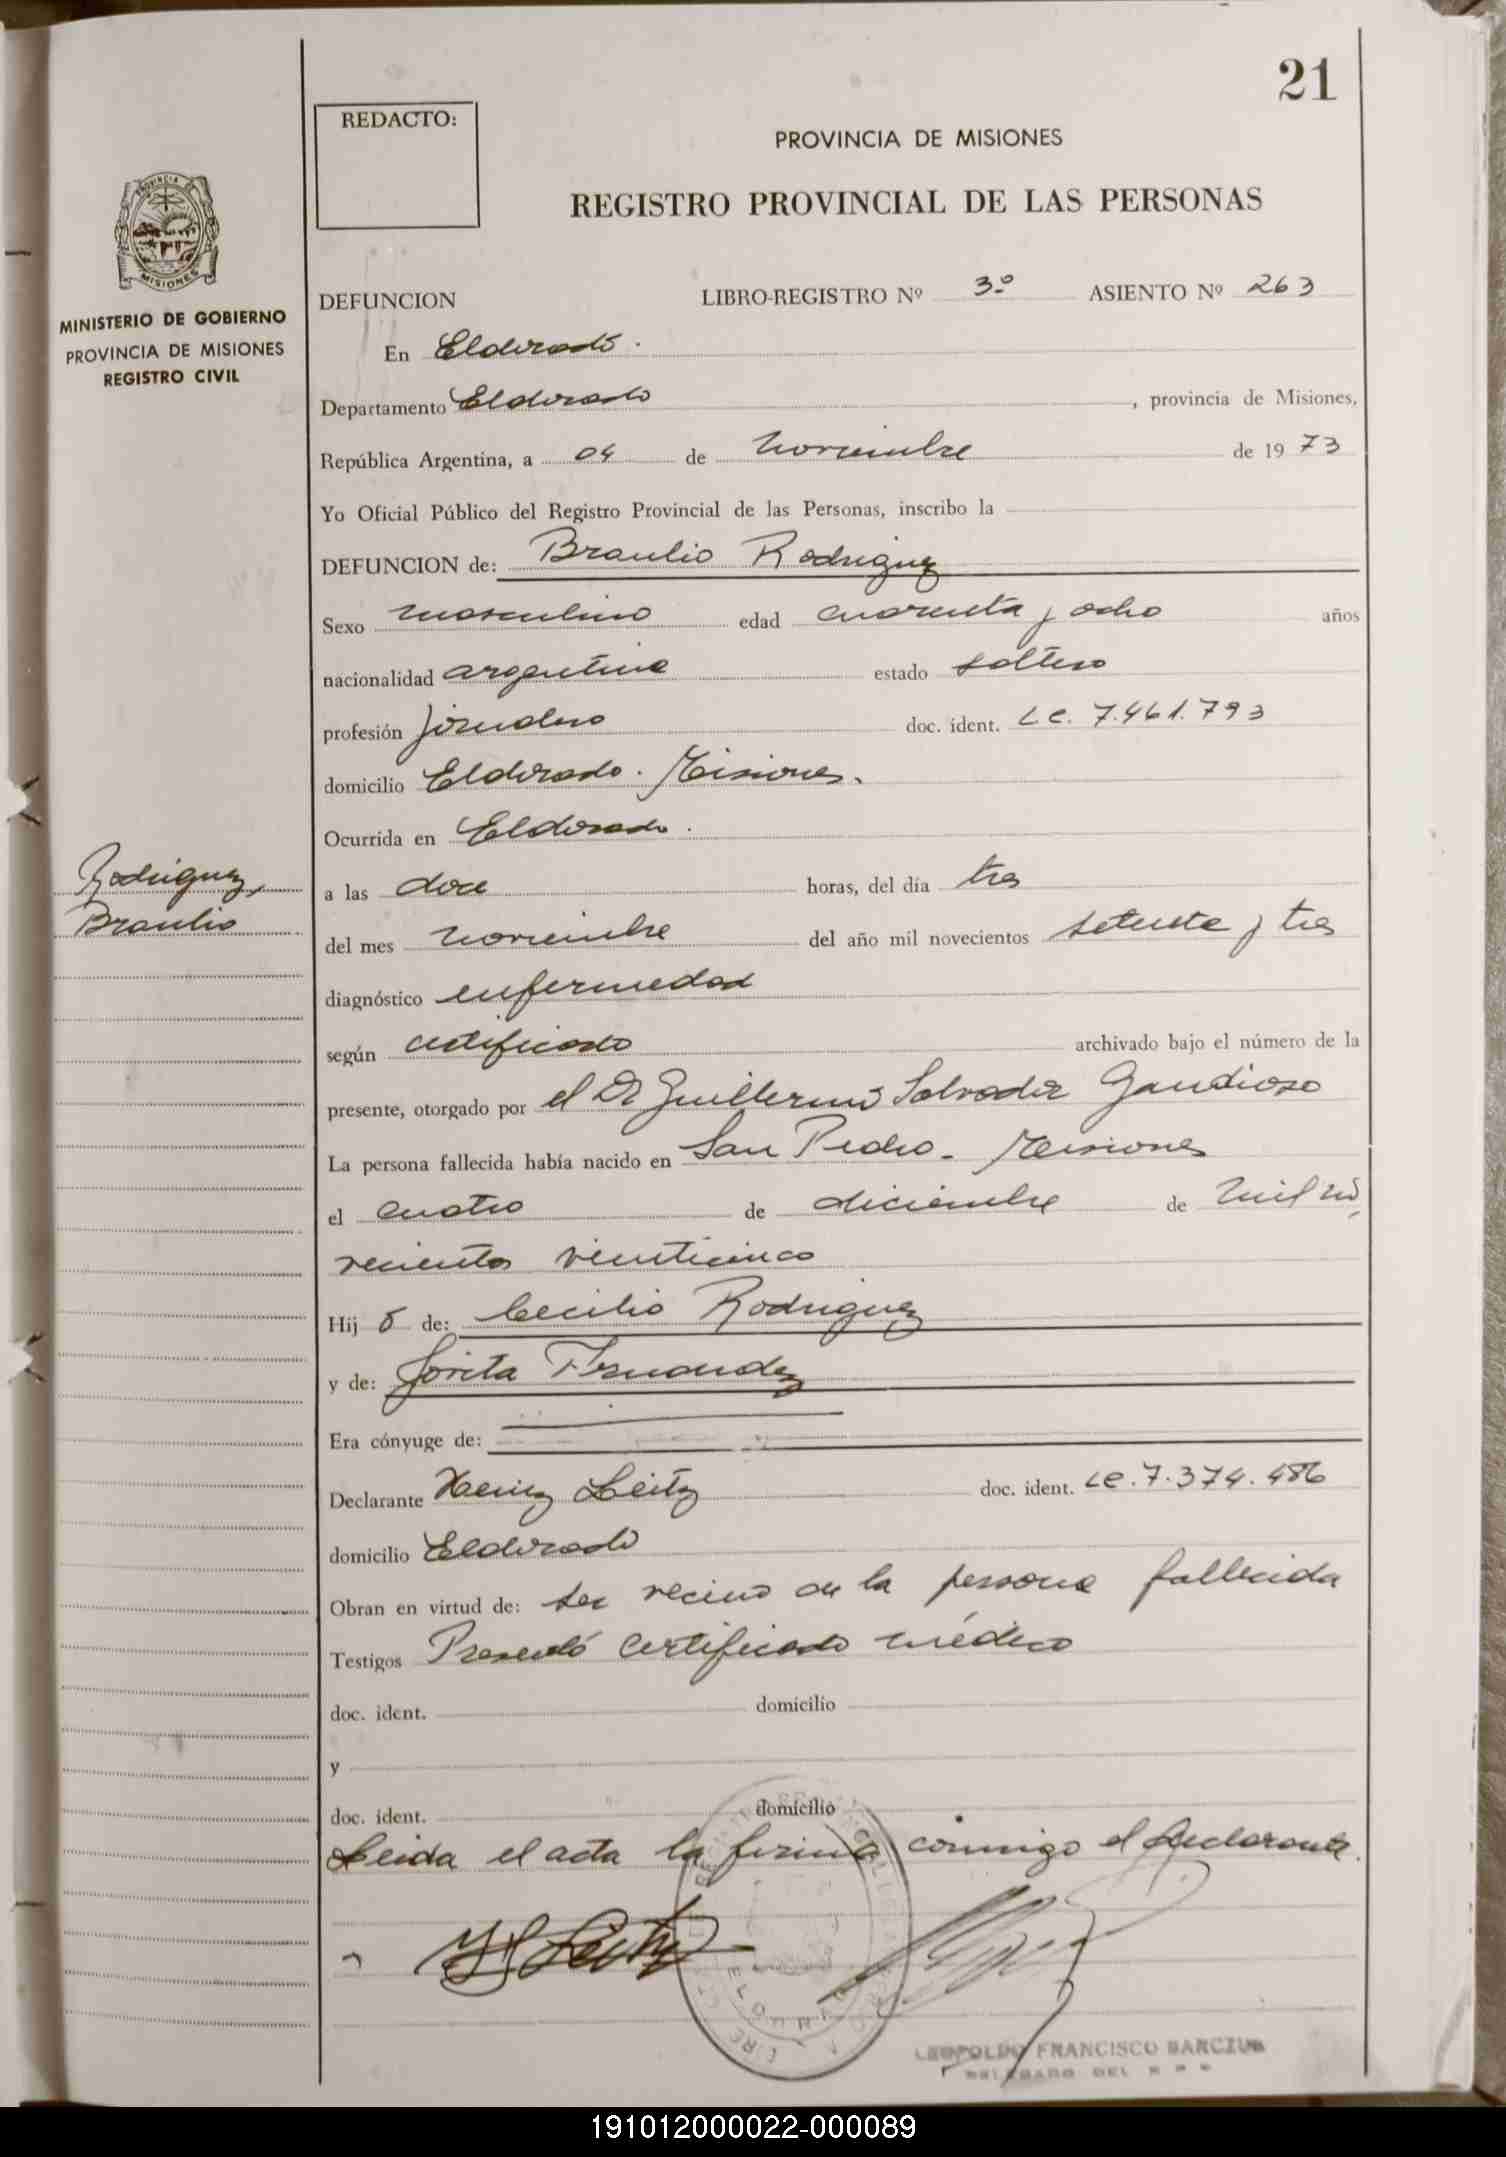 21
REDACTO:
PROVINCIA DE MISIONES
REGISTRO PROVINCIAL DE LAS PERSONAS
PROVINCIA DE
MISIONES
MINISTERIO DE GOBIERNO
PROVINCIA DE MISIONES
REGISTRO CIVIL
DEFUNCION LIBRO-REGISTRO Nº 3º ASIENTO Nº 263
En Eldorado.
Departamento Eldorado, provincia de Misiones,
República Argentina, a 04 de noviembre de 1973
Yo Oficial Público del Registro Provincial de las Personas, inscribo la
DEFUNCION de: Braulio Rodriguez
Sexo masculino edad cuarenta y ocho años
nacionalidad argentina estado soltero
profesión jornalero doc. ident. L.E. 7.461.793
domicilio Eldorado. Misiones.
Ocurrida en Eldorado.
Rodriguez,
Braulio
a las doce horas, del día tres
del mes noviembre del año mil novecientos setenta y tres
diagnóstico enfermedad
según certificado archivado bajo el número de la
presente, otorgado por el Dr Guillermo Salvador Gaudioso
La persona fallecida había nacido en San Pedro - Misiones
el cuatro de diciembre de mil no
vecientos veinticinco
Hij o de: Cecilio Rodriguez
y de: Fernandez
Era cónyuge de:
Declarante Heinz Leitz doc. ident. LE. 7.374.486
domicilio Eldorado
Obran en virtud de: ser vecino de la persona fallecida
Testigos Presentó certificado médico
doc. ident. domicilio
y
doc. ident. domicilio
Leida el acta la firma conmigo el declarante.
H Leitz
LEOPOLDO FRANCISCO
DELEGADO DEL R P P
191012000022-000089